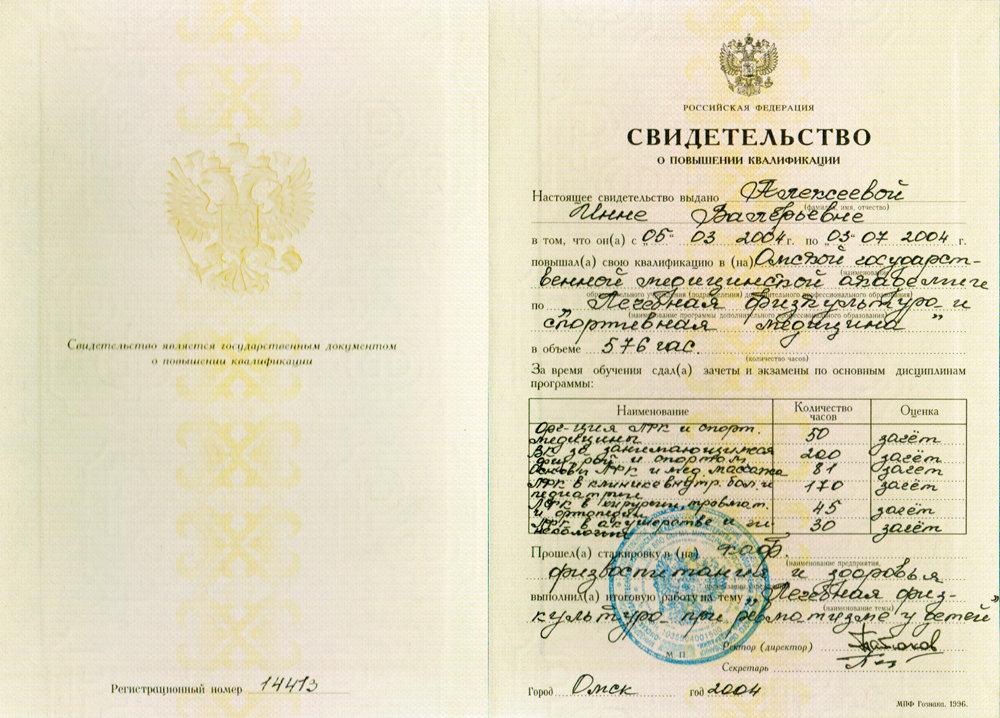 Свидетельство является государственным документом
о повышении квалификации
Регистрационный номер 14413
РОССИЙСКАЯ ФЕДЕРАЦИЯ
СВИДЕТЕЛЬСТВО
О ПОВЫШЕНИИ КВАЛИФИКАЦИИ
Настоящее свидетельство выдано Алексеевой
(фамилия, имя, отчество)
Инне Валерьевне
в том, что он(а) с "05" 03 2004 г. по "03" 07 2004 г.
повышал(а) свою квалификацию в (на) Омской государст-
(наименование
венной медицинской академии
образовательного учреждения (подразделения) дополнительного профессионального образования)
по "Лечебная физкультура и
(наименование программы дополнительного профессионального образования)
спортивная медицина"
в объеме 576 час.
(количество часов)
За время обучения сдал(а) зачеты и экзамены по основным дисциплинам
программы:
Наименование Количество часов Оценка
Орг-ция ЛФК и спорт.
медицины 50 зачёт
ВК за занимающимися
физ-рой и спортом 200 зачёт
Основы ЛФК и мед. массажа 81 зачёт
ЛФК в клинике внутр. бол. и
педиатрии 170 зачёт
ЛФК в хирургии, травмат.
и ортопедии 45 зачёт
ЛФК в акушерстве и ги-
некологии 30 зачёт
Прошел(а) стажировку в (на) каф.
(наименование предприятия,
физвоспитания и здоровья
выполнил(а) итоговую работу на тему "Лечебная физ-
(наименование темы)
культура при ревматизме у детей"
Ректор (директор)
М П
Секретарь
Город Омск год 2004
МПФ Гознака. 1996.